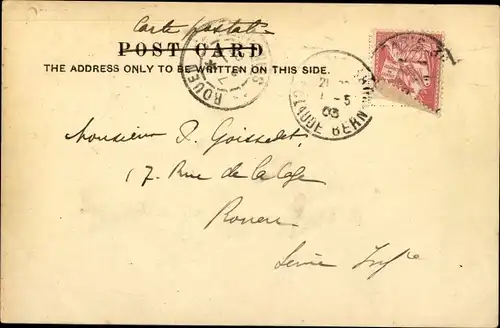 Carte postale
POST CARD
THE ADDRESS ONLY TO BE WRITTEN ON THIS SIDE.
ROUEN
21
1 - 5
03
CLAUDE BERN
Monsieur P. Goisselet,
17 Rue de la Cage
Rouen
Seine Infre